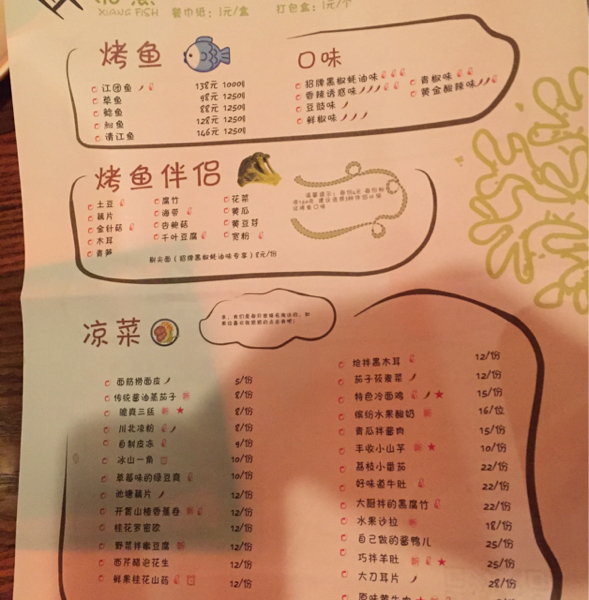 XIANG FISH 餐巾纸：1元/盒 打包盒：1元/个
烤鱼
江团鱼 138元 1000g
草鱼 98元 1250g
鲶鱼 88元 1250g
128元 1250g
清江鱼 146元 1250g
口味
招牌黑椒蚝油味
香辣诱惑味
豆豉味
鲜椒味
青椒味
黄金酸辣味
烤鱼伴侣
土豆 腐竹 花菜
藕片 海带 黄瓜
金针菇 杏鲍菇 黄豆芽
木耳 千叶豆腐 宽粉
青笋
刷尖面（招牌黑椒蚝油味专享）8元/份
凉菜
面筋捞面皮 5/份
传统酱油蒸茄子 新 8/份
脆爽三丝 新 8/份
川北凉粉 8/份
自制皮冻 9/份
冰山一角 10/份
草莓味的绿豆爽 10/份
池塘藕片 12/份
开胃山楂香蕉卷 新 12/份
桂花罗密欧 12/份
野菜拌嫩豆腐 新 12/份
西芹精迫花生 12/份
鲜果桂花山药 12/份
炝拌黑木耳 12/份
茄子莜麦菜 12/份
特色冷面鸡 15/份
缤纷水果酸奶 新 16/位
青瓜拌酱肉 15/份
丰收小山芋 新 10/份
荔枝小番茄 22/份
好味道牛肚 22/份
大厨拌的黑腐竹 22/份
水果沙拉 新 18/份
自己做的酱鸭儿 25/份
巧拌羊肚 新 25/份
大刀耳片 28/份
原味黄牛肉